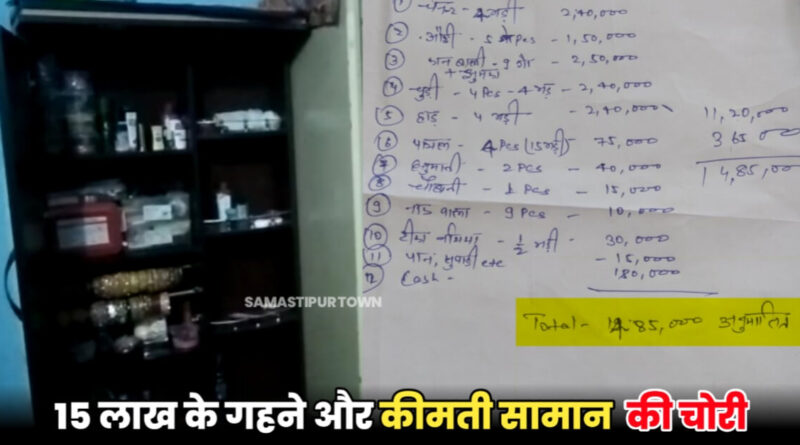 ① चेन - 4 भड़ी 2,40,000
② औंठी - 5 Pcs - 1,50,000
③ बाली - 9 - 2,50,000
+ झुमका
④ चुड़ी - 4 Pcs - 4 भड़ - 2,40,000
⑤ हार - 4 भड़ी - 2,40,000 11,20,000
⑥ पायल - 4 Pcs (15 भड़ी) 75,000 3,65,000
⑦ हनुमानी - 2 Pcs - 40,000 14,85,00
⑧ - 1 Pcs - 15,000
⑨ वाला - 9 Pcs - 10,000
⑩ टीका नथिया - 1/2 भड़ी - 30,000
⑪ etc - 15,000
12 Cash - 180,000
SAMASTIPUR TOWN
Total - 14,85,000 अनुमानित
15 लाख के गहने और कीमती सामान की चोरी